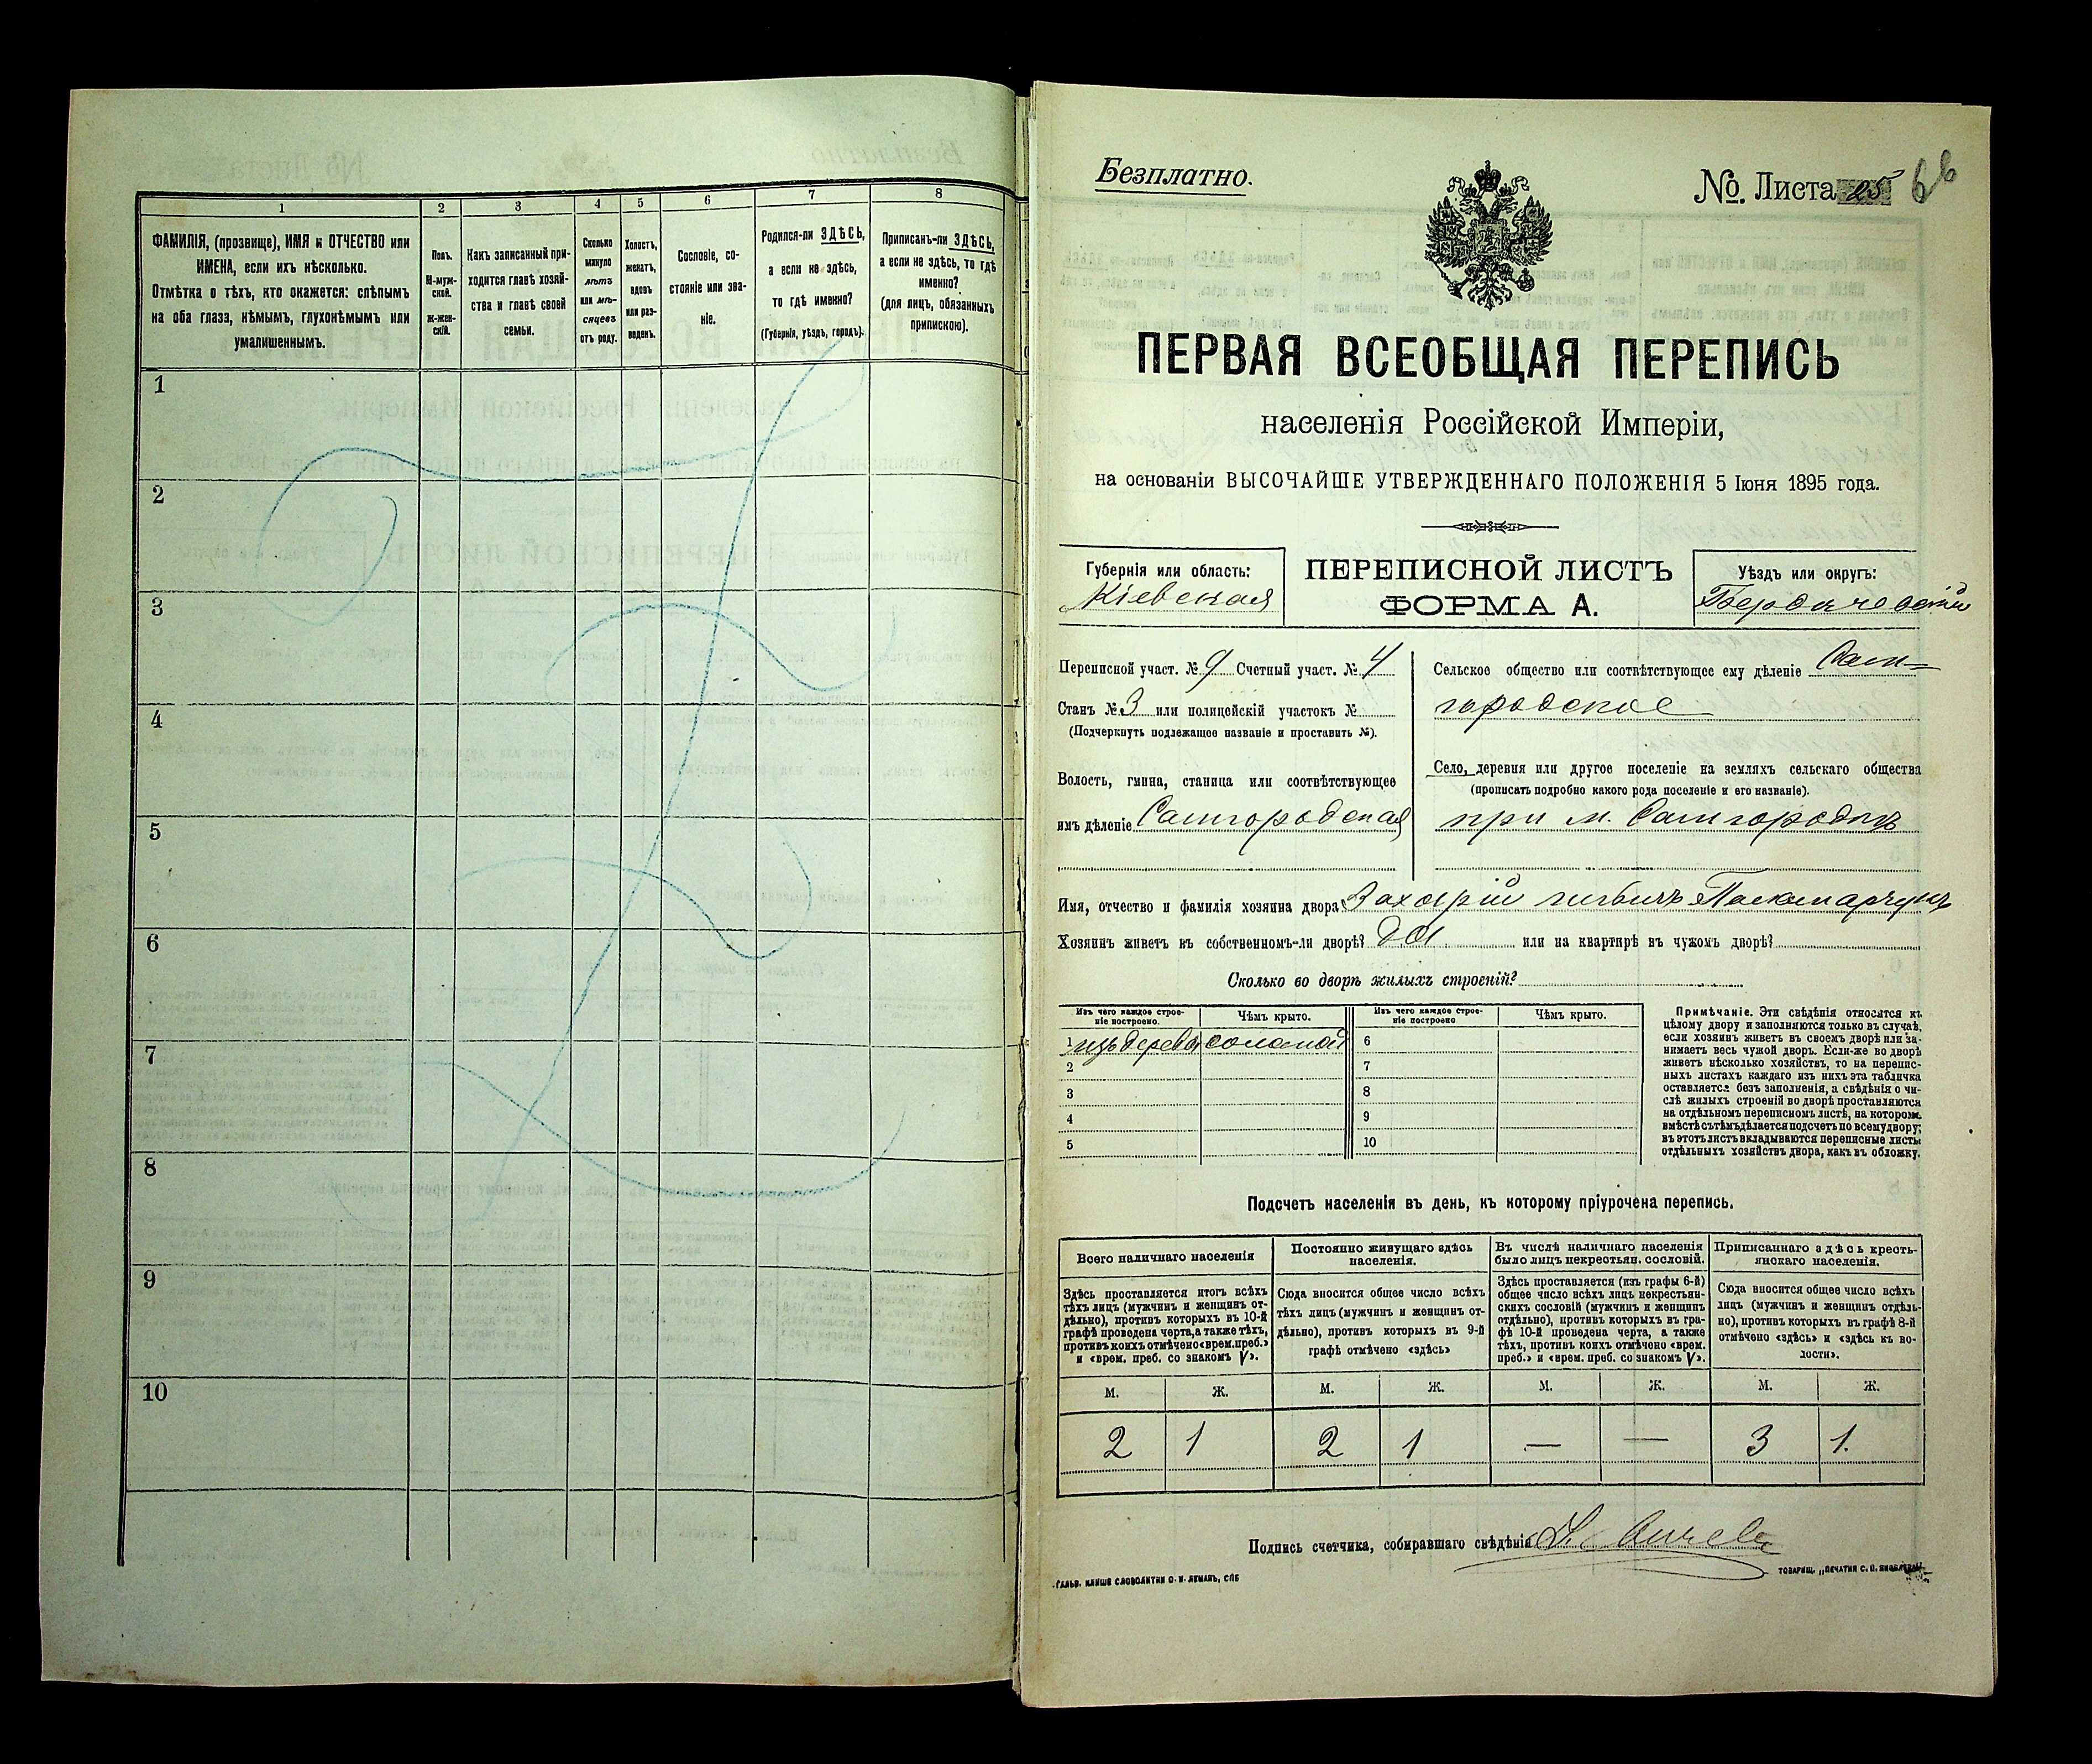 1
2
3
4
5
6
7
8
ФАМИЛІЯ, (прозвище), ИМЯ и ОТЧЕСТВО или
ИМЕНА, если ихъ нѣсколько.
Отмѣтка о тѣхъ, кто окажется: слѣпымъ
на оба глаза, нѣмымъ, глухонѣмымъ или
умалишеннымъ.
Полъ.
М-муж-
ской.
ж-жен-
скій.
Какъ записанный при-
ходится главѣ хозяй-
ства и главѣ своей
семьи.
Сколько
минуло
лѣтъ
или мѣ-
сяцевъ
отъ роду.
Холостъ,
женатъ,
вдовъ
или раз-
веденъ.
Сословіе, со-
стояніе или зва-
ніе.
Родился-ли ЗДѢСЬ,
а если не здѣсь,
то гдѣ именно?
(Губернія, уѣздъ, городъ).
Приписанъ-ли ЗДѢСЬ,
а если не здѣсь, то гдѣ
именно?
(для лицъ, обязанныхъ
припискою).
1
2
3
4
5
6
7
8
9
10
Безплатно.
№. Листа 25
66
ПЕРВАЯ ВСЕОБЩАЯ ПЕРЕПИСЬ
населенія Россійской Имперіи,
на основаніи ВЫСОЧАЙШЕ УТВЕРЖДЕННАГО ПОЛОЖЕНІЯ 5 Іюня 1895 года.
Губернія или область:
Кіевская
ПЕРЕПИСНОЙ ЛИСТЪ
ФОРМА А.
Уѣздъ или округъ:
Бердичевскій
Переписной участ. № 9 Счетный участ. № 4
Станъ № 3 или полицейскій участокъ №
(Подчеркнуть подлежащее названіе и проставить №).
Волость, гмина, станица или соотвѣтствующее
имъ дѣленіе Самгородская
Сельское общество или соотвѣтствующее ему дѣленіе Сам-
городское
Село, деревня или другое поселеніе на земляхъ сельскаго общества
(прописать подробно какого рода поселеніе и его названіе).
при м. Самгородкѣ
Имя, отчество и фамилія хозяина двора? Захарій
Хозяинъ живетъ въ собственномъ-ли дворѣ? да или на квартирѣ въ чужомъ дворѣ?
Сколько во дворѣ жилыхъ строеній?
Изъ чего каждое строе-
ніе построено.
Чѣмъ крыто.
Изъ чего каждое строе-
ніе построено
Чѣмъ крыто.
1 изъ дерева соломой
2
3
4
5
6
7
8
9
10
Примѣчаніе. Эти свѣдѣнія относятся къ
цѣлому двору и заполняются только въ случаѣ,
если хозяинъ живетъ въ своемъ дворѣ или за-
нимаетъ весь чужой дворъ. Если-же во дворѣ
живетъ нѣсколько хозяйствъ, то на перепис-
ныхъ листахъ каждаго изъ нихъ эта табличка
оставляется безъ заполненія, а свѣдѣнія о чи-
слѣ жилыхъ строеній во дворѣ проставляются
на отдѣльномъ переписномъ листѣ, на которомъ
вмѣстѣ съ тѣмъ дѣлается подсчетъ по всему двору;
въ этотъ листъ вкладываются переписные листы
отдѣльныхъ хозяйствъ двора, какъ въ обложку.
Подсчетъ населенія въ день, къ которому пріурочена перепись.
Всего наличнаго населенія
Постоянно живущаго здѣсь
населенія.
Въ числѣ наличнаго населенія
было лицъ некрестьян. сословій.
Приписаннаго здѣсь кресть-
янскаго населенія.
Здѣсь проставляется итогъ всѣхъ
тѣхъ лицъ (мужчинъ и женщинъ от-
дѣльно), противъ которыхъ въ 10-й
графѣ проведена черта, а также тѣхъ,
противъ коихъ отмѣчено «врем. преб.»
и «врем. преб. со знакомъ V».
Сюда вносится общее число всѣхъ
тѣхъ лицъ (мужчинъ и женщинъ от-
дѣльно), противъ которыхъ въ 9-й
графѣ отмѣчено «здѣсь»
Здѣсь проставляется (изъ графы 6-й)
общее число всѣхъ лицъ некрестьян-
скихъ сословій (мужчинъ и женщинъ
отдѣльно), противъ которыхъ въ гра-
фѣ 10-й проведена черта, а также
тѣхъ, противъ коихъ отмѣчено «врем.
преб.» и «врем. преб. со знакомъ V».
Сюда вносится общее число всѣхъ
лицъ (мужчинъ и женщинъ отдѣль-
но), противъ которыхъ въ графѣ 8-й
отмѣчено «здѣсь» и «здѣсь къ во-
лости».
М. Ж. М. Ж. М. Ж. М. Ж.
2 1 2 1 — — 3 1.
Подпись счетчика, собиравшаго свѣдѣнія
ГАЛЬВ. КЛИШЕ СЛОВОЛИТНИ О. И. ЛЕМАНЪ, СПБ
ТОВАРИЩ. „ПЕЧАТНЯ С. П. ЯКОВЛЕВА".